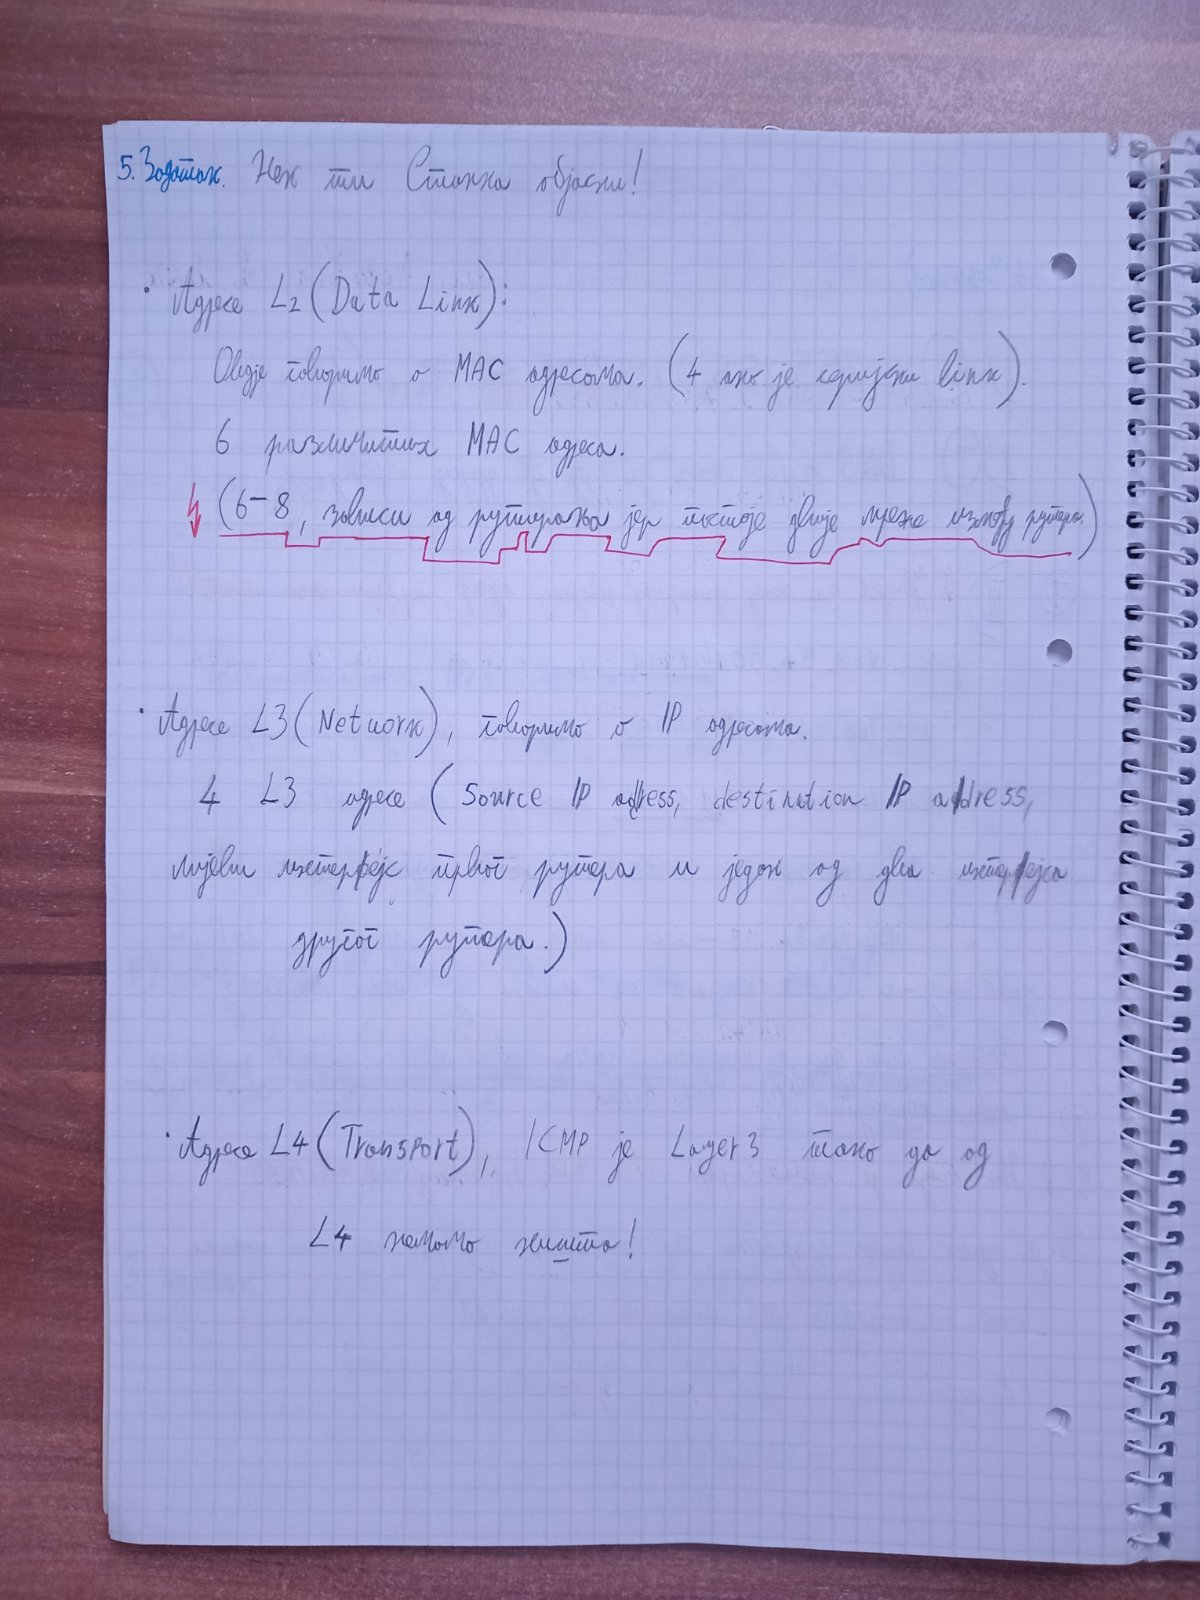 5. Задатак. Нек ти Станка објасни!
• Адресе L2 (Data Link):
Овдје говоримо о MAC адресама. (4 ако је серијски link).
6 различитих MAC адреса.
(6-8, зависи од рутирања јер постоје двије мреже између рутера.)
• Адресе L3 (Network), говоримо о IP адресама.
4 L3 адресе (Source IP adress, destination IP address,
лијеви интерфејс првог рутера и један од два интерфејса
другог рутера.)
• Адресе L4 (Transport), ICMP је Layer 3 тако да од
L4 немамо ништа!